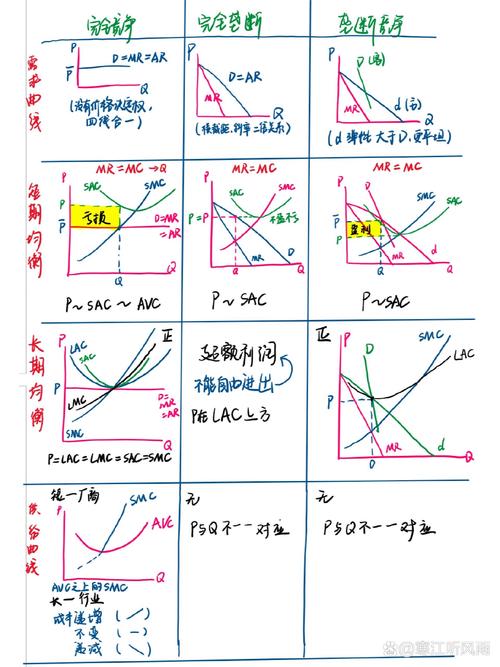 完全竞争
完全垄断
垄断竞争
需求曲线
P
P̄
D=MR=AR
Q
(没有价格决定权,
四线合一)
P
D=AR
MR
Q
(横截距、斜率二倍关系)
P
D(客)
d(主)
MR
Q
(d 弹性大于D,更平坦)
短期均衡
MR=MC→Q
P
SAC
SMC
P̄
亏损
D=MR
=AR
Q
Q
P~SAC~AVC
MR=MC
P
SAC
SMC
P=P
不盈不亏
Q
MR
D
Q
P~SAC
MR=MC
P
D
SAC
SMC
P̄
盈利
Q
MR
d
Q
P~SAC
长期均衡
正
P
LAC
SAC
P
LMC
SMC
D=
MR
=AR
Q
P=LAC=LMC=SAC=SMC
超额利润
不能自由进出
P在LAC上方
正
P
D
SMC
LAC
P
MR
d
Q
Q
供给曲线
短一厂商
P
SMC
AVC
Q
AVC之上的SMC
长一行业
成本递增 (／)
不变 (—)
递减 (＼)
无
P与Q不一一对应
无
P与Q不一一对应
@寒江听风雨